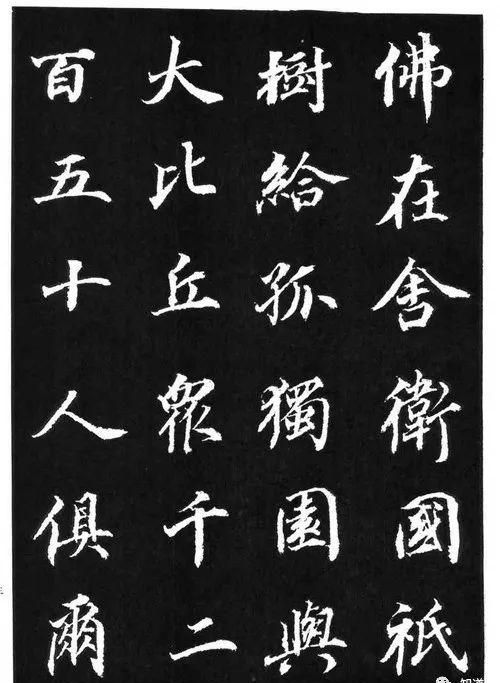 佛在舍衛國祇
樹給孤獨園與
大比丘衆千二
百五十人俱爾
知道